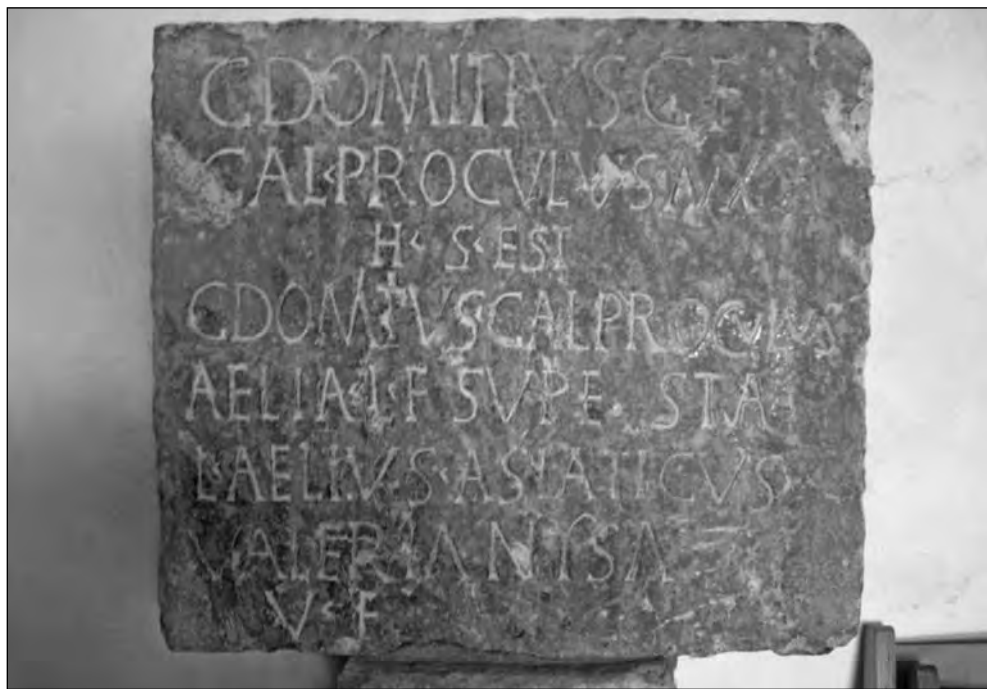 C DOMITIVS C F
CAL PROCVLVS
H S EST
C DOMITIVS CAL PROCVLVS
AELIA L F SVPE STA
L AELIVS ASIATICVS
VALERIA NYSA
V F